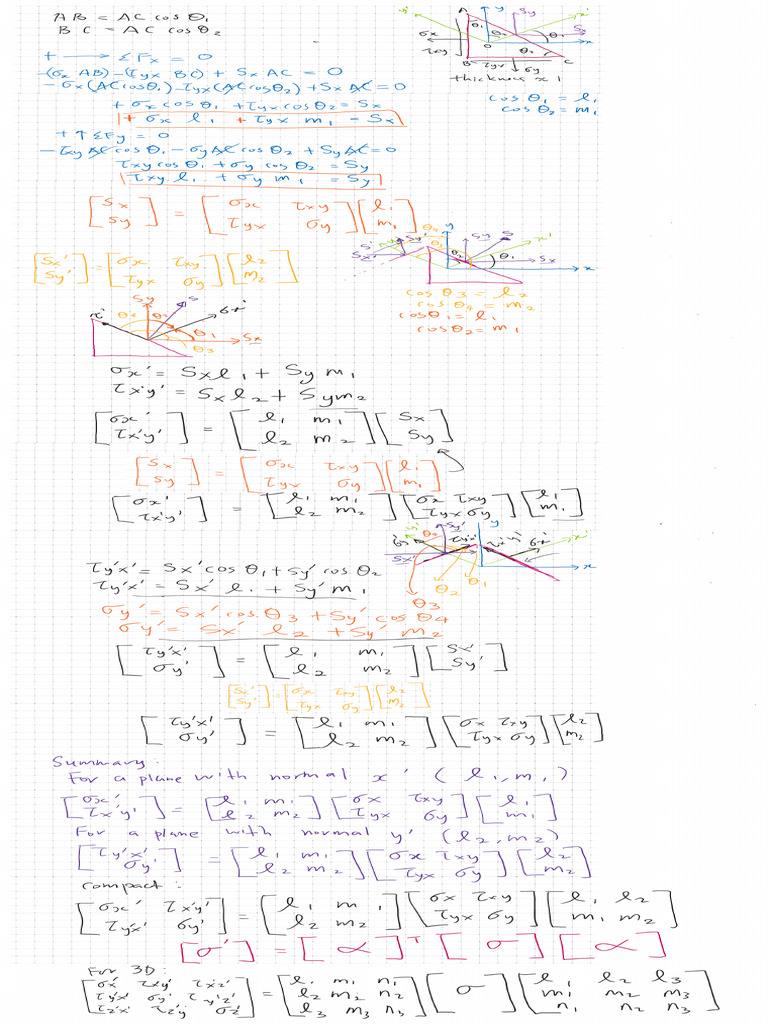 AB = AC cos θ₁
BC = AC cos θ₂
A
B
C
O
x
y
x'
y'
θ₁
θ₂
σx
τxy
τyx
σy
Sx
Sy
S
thickness x 1
cos θ₁ = l₁
cos θ₂ = m₁
+ → ΣFx = 0
-(σx AB) -(τyx BC) + Sx AC = 0
-σx(AC cosθ₁) - τyx(AC cosθ₂) + Sx AC = 0
+ σx cosθ₁ + τyx cosθ₂ = Sx
+ σx l₁ + τyx m₁ = Sx
+ ↑ ΣFy = 0
-τxy AC cosθ₁ - σy AC cosθ₂ + Sy AC = 0
τxy cosθ₁ + σy cosθ₂ = Sy
τxy l₁ + σy m₁ = Sy
[Sx Sy] = [σx τxy τyx σy] [l₁ m₁]
[Sx' Sy'] = [σx τxy τyx σy] [l₂ m₂]
cos θ₃ = l₂
cos θ₄ = m₂
cosθ₁ = l₁
cosθ₂ = m₁
σx' = Sx l₁ + Sy m₁
τx'y' = Sx l₂ + Sy m₂
[σx' τx'y'] = [l₁ m₁ l₂ m₂] [Sx Sy]
[Sx Sy] = [σx τxy τyx σy] [l₁ m₁]
[σx' τx'y'] = [l₁ m₁ l₂ m₂] [σx τxy τyx σy] [l₁ m₁]
τy'x' = Sx' cos θ₁ + Sy' cos θ₂
τy'x' = Sx' l₁ + Sy' m₁
σy' = Sx' cos θ₃ + Sy' cos θ₄
σy' = Sx' l₂ + Sy' m₂
θ₃
θ₂
θ₁
[τy'x' σy'] = [l₁ m₁ l₂ m₂] [Sx' Sy']
[Sx' Sy'] = [σx τxy τyx σy] [l₂ m₂]
[τy'x' σy'] = [l₁ m₁ l₂ m₂] [σx τxy τyx σy] [l₂ m₂]
Summary:
For a plane with normal x' (l₁, m₁)
[σx' τx'y'] = [l₁ m₁ l₂ m₂] [σx τxy τyx σy] [l₁ m₁]
For a plane with normal y' (l₂, m₂)
[τy'x' σy'] = [l₁ m₁ l₂ m₂] [σx τxy τyx σy] [l₂ m₂]
compact:
[σx' τx'y' τy'x' σy'] = [l₁ m₁ l₂ m₂] [σx τxy τyx σy] [l₁ l₂ m₁ m₂]
[σ'] = [α]ᵀ [σ] [α]
For 3D:
[σx' τx'y' τx'z' τy'x' σy' τy'z' τz'x' τz'y' σz'] = [l₁ m₁ n₁ l₂ m₂ n₂ l₃ m₃ n₃] [σ] [l₁ l₂ l₃ m₁ m₂ m₃ n₁ n₂ n₃]